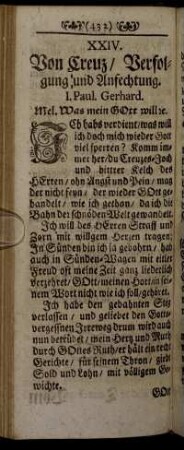 (432)
XXIV.
Von Creuz/ Verfol-
gung/ und Anfechtung.
I. Paul. Gerhard.
Mel. Was mein GOtt will ꝛc.
Ich habs verdient/ was will
ich doch mich wieder Gott
viel sperren? Komm im-
mer her/ du Creuzes-Joch
und bitter Kelch des
HErten/ ohn Angst und Pein/ mag
der nicht seyn/ der wieder GOtt ge-
handelt/ wie ich gethan/ da ich die
Bahn der schnöden Welt gewandelt.
Ich will des HErten Straff und
Zorn mit willgem Herzen tragen:
In Sünden bin ich ja gebohrn/ hab
auch in Sünden-Wagen mit eitler
Freud offt meine Zeit ganz liederlich
verzehret/ GOtt/ meinen Hort/ in sei-
nem Wort nicht wie ich soll/ gehöret.
Ich habe den gebahnten Steg
verlassen/ und geliebet den Gott-
vergeßnen Irreweg/ drum wird auch
nun betrübet/ mein Herz und Muth
durch GOttes Ruth/ er hält ein recht
Gerichte/ für seinem Thron/ giebt
Sold und Lohn/ mit völligem Ge-
wichte.
GOtt